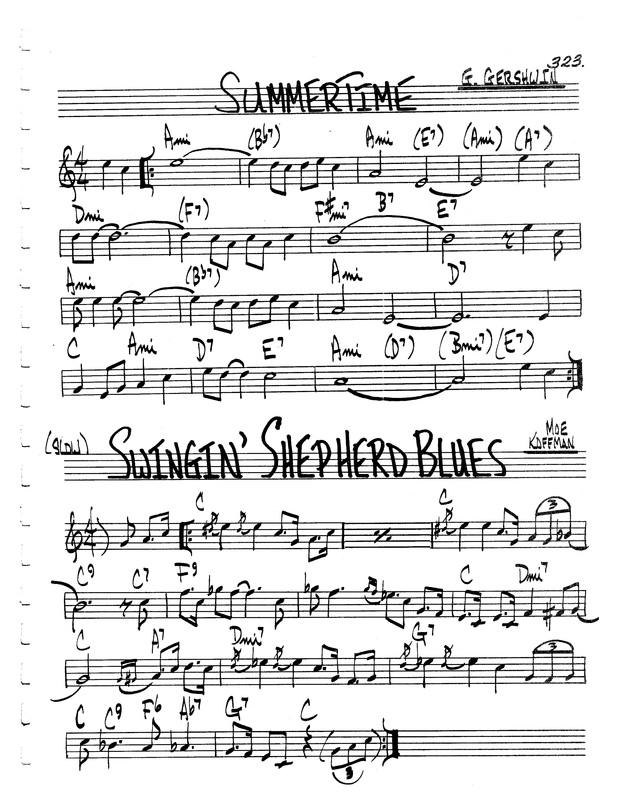 323.
SUMMERTIME
G. GERSHWIN
Ami (Bb7) Ami (E7) (Ami) (A7)
4 4
Dmi (F7) F#mi7 B7 E7
Ami (Bb7) Ami D7
C Ami D7 E7 Ami (D7) (Bmi7) (E7)
(SLOW)
SWINGIN' SHEPHERD BLUES
MOE KOFFMAN
C C
4 4 3
C9 C7 F9 C Dmi7
C A7 Dmi7 G7
3
C C9 F6 Ab7 G7 C
3